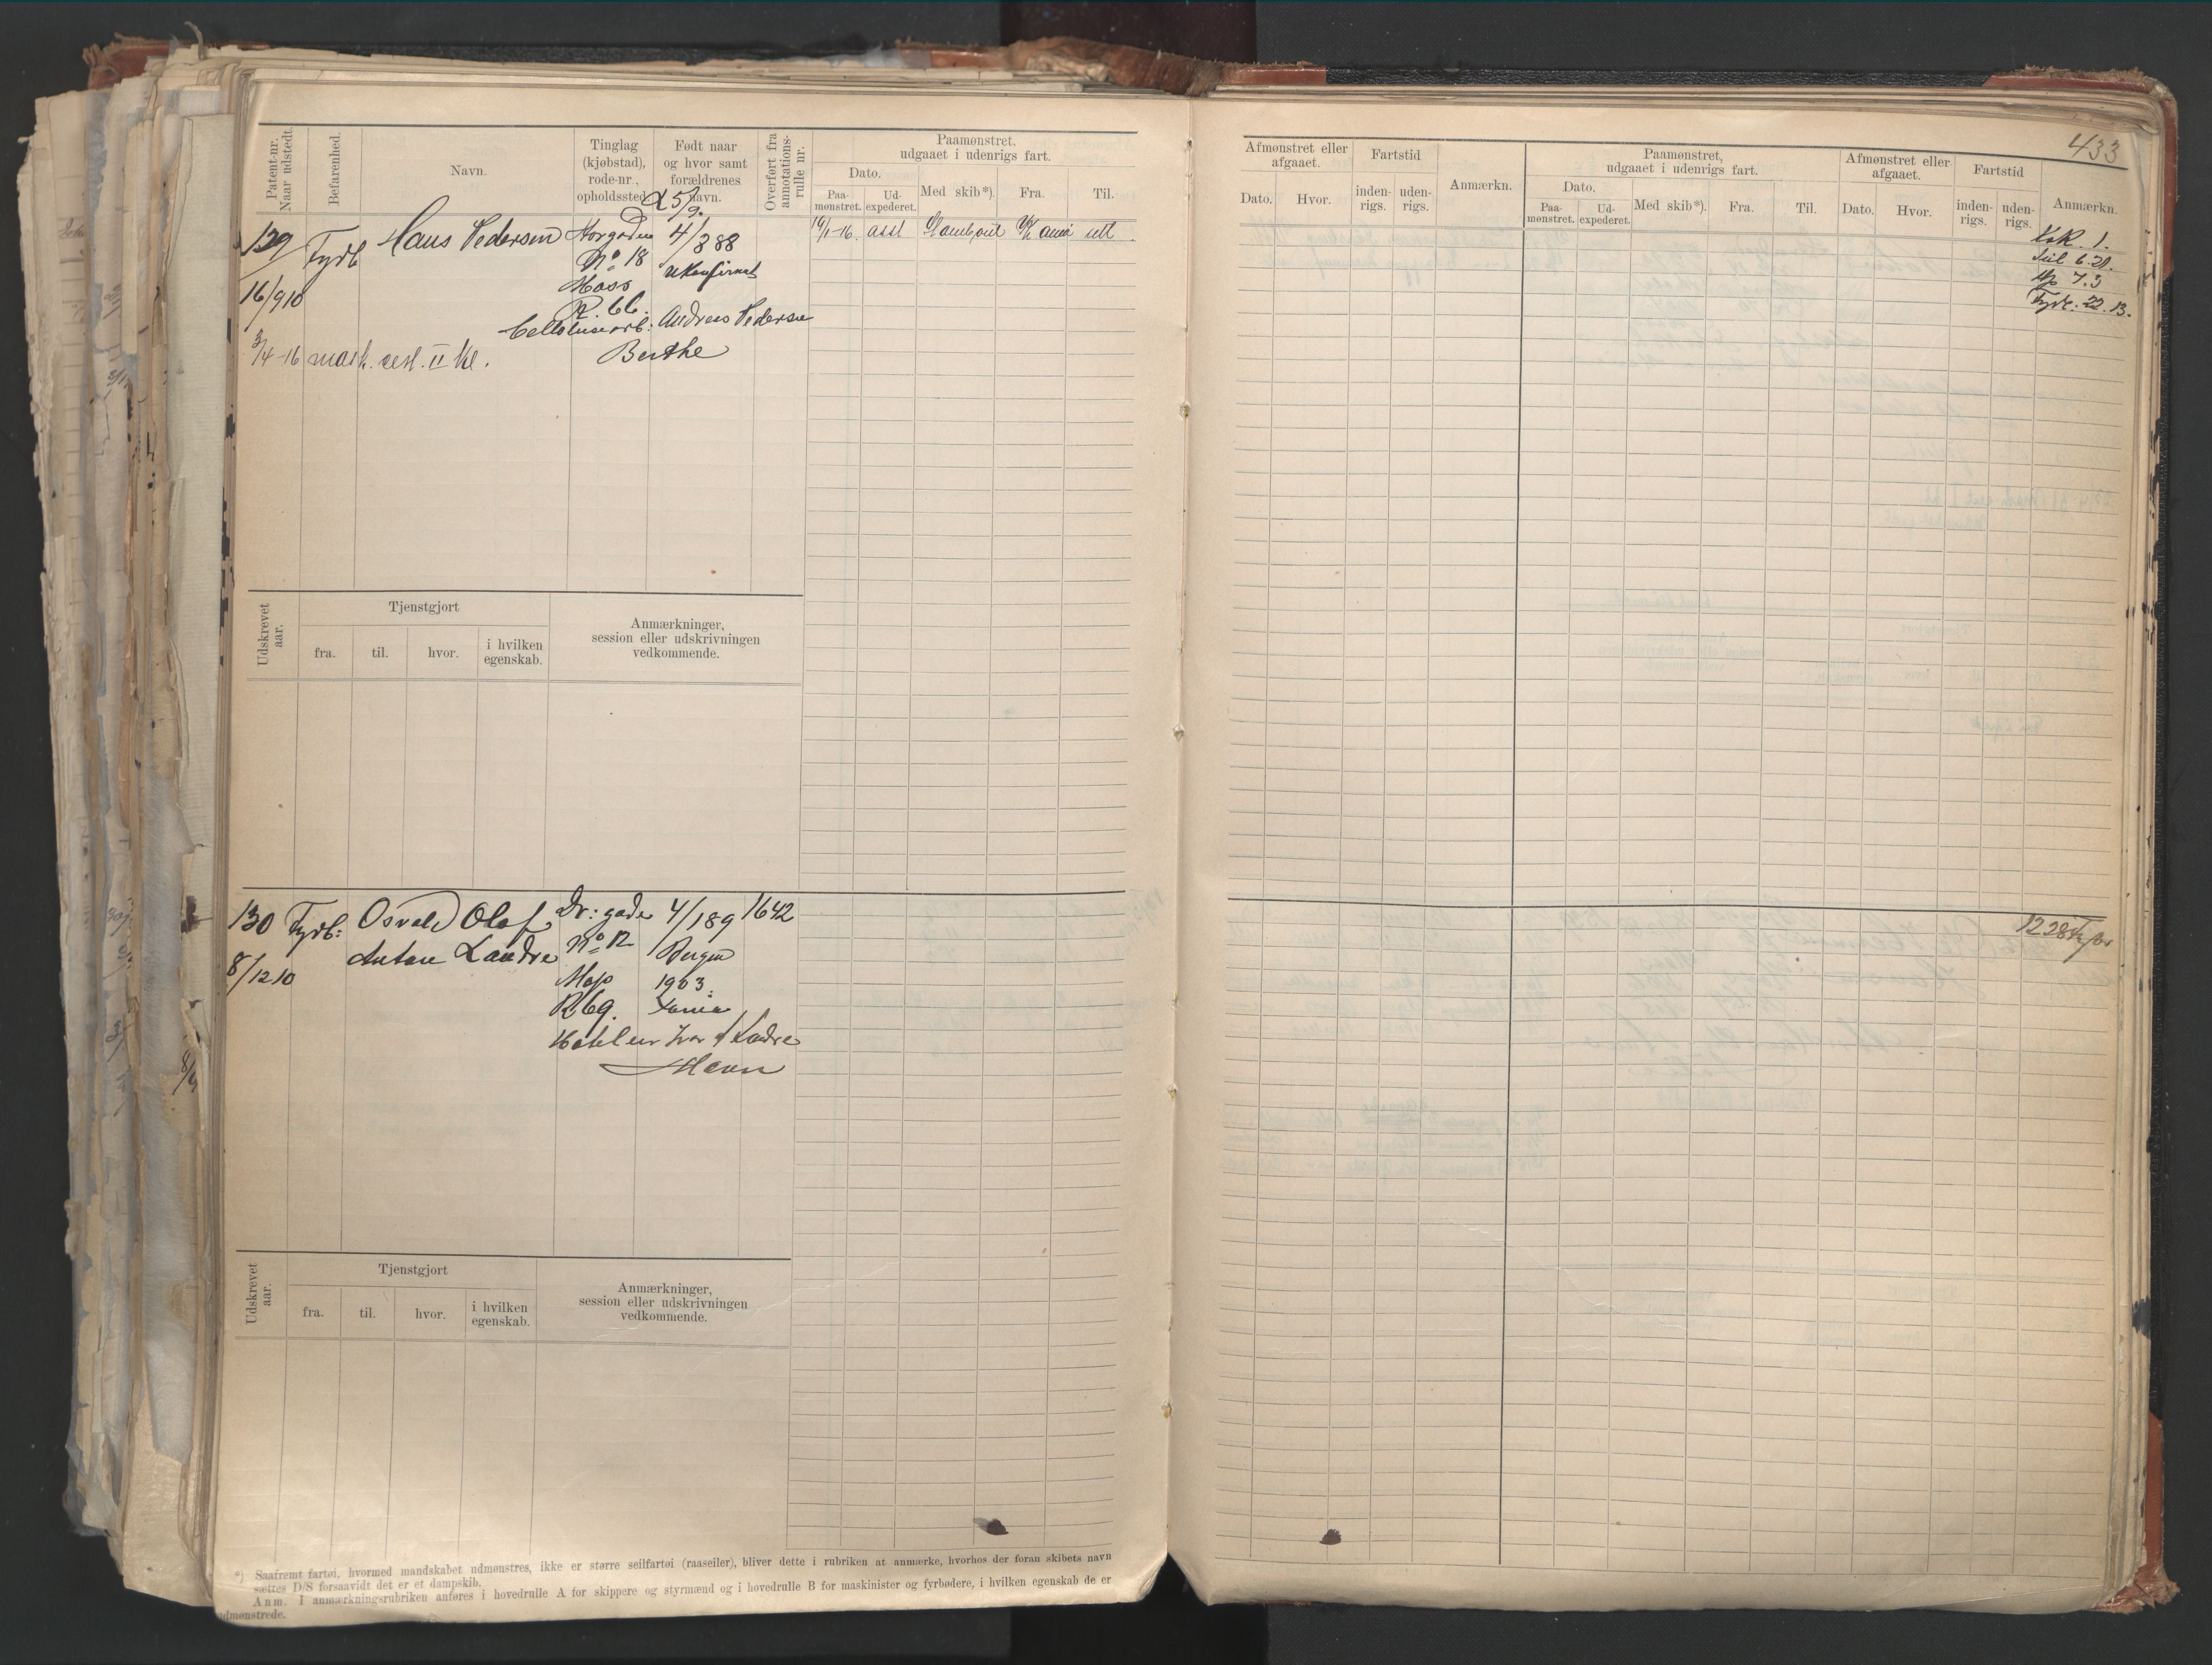 433
Patent-nr. Naar udstedt.
Befarenhed.
Navn.
Tinglag (kjøbstad), rode-nr., opholdssted.
Født naar og hvor samt forældrenes navn.
Overført fra annotations-rulle nr.
Paamønstret, udgaaet i udenrigs fart.
Dato.
Paa-mønstret.
Ud-expederet.
Med skib*).
Fra.
Til.
Afmønstret eller afgaaet.
Dato.
Hvor.
Fartstid
inden-rigs.
uden-rigs.
Anmærkn.
Paamønstret, udgaaet i udenrigs fart.
Dato.
Paa-mønstret.
Ud-expederet.
Med skib*).
Fra.
Til.
Afmønstret eller afgaaet.
Dato.
Hvor.
Fartstid
inden-rigs.
uden-rigs.
Anmærkn.
129
Fyrb
Hans Pedersen
No 18
4/8 88
Moss
16/9 10
R. 66.
Andreas Pedersen
Berthe
3/4-16 mask. cert. II kl.
KoK. 1.
Seil 6.21.
7.3
Fyrb. 22.13.
Udskrevet aar.
Tjenstgjort
fra.
til.
hvor.
i hvilken egenskab.
Anmærkninger, session eller udskrivningen vedkommende.
130 Fyrb: Osvald Olaf
Dr: gade 4/1 89 1642
No 12 Bergen
8/12 10
1903
R 69.
Udskrevet aar.
Tjenstgjort
fra.
til.
hvor.
i hvilken egenskab.
Anmærkninger, session eller udskrivningen vedkommende.
*) Saafremt fartøi, hvormed mandskabet udmønstres, ikke er større seilfartøi (raaseiler), bliver dette i rubriken at anmærke, hvorhos der foran skibets navn
sættes D/S forsaavidt det er et dampskib.
Anm. I anmærkningsrubriken anføres i hovedrulle A for skippere og styrmænd og i hovedrulle B for maskinister og fyrbødere, i hvilken egenskab de er
udmønstrede.